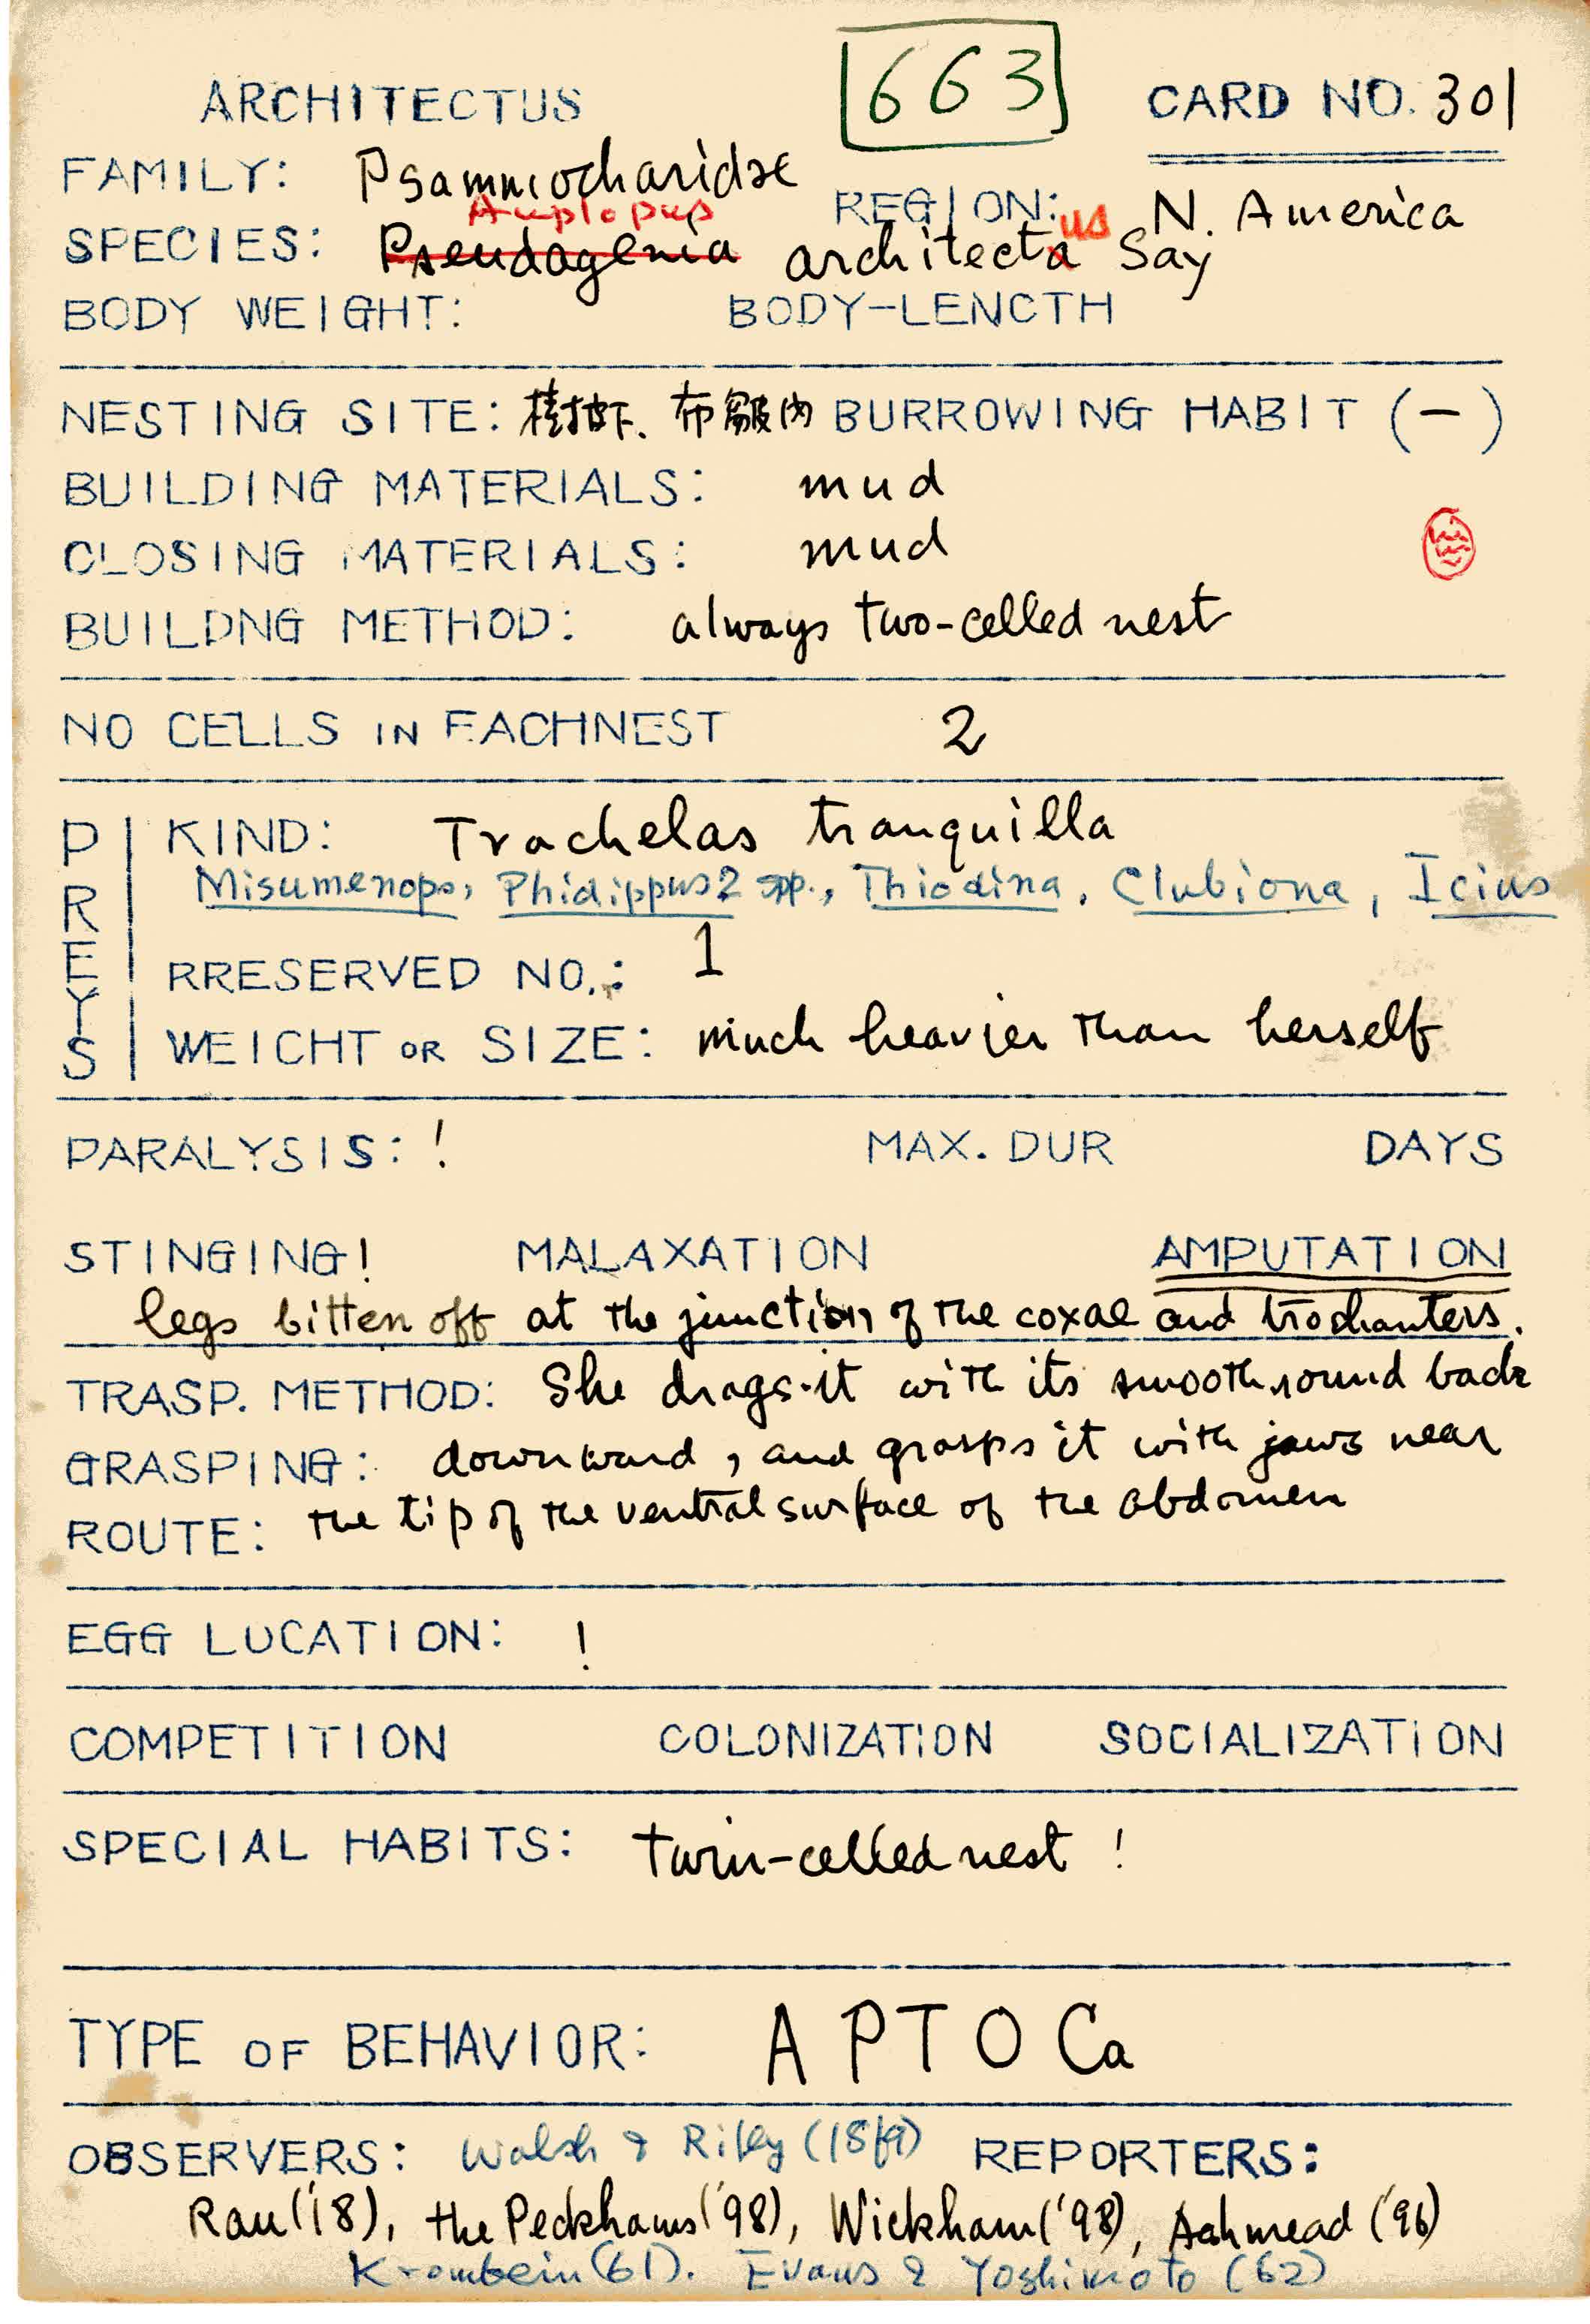 663
ARCHITECTUS CARD NO. 301
FAMILY: Psammocharidae
Auplopus
REGION: N. America
SPECIES: Pseudagenia architecta us Say
BODY WEIGHT: BODY-LENCTH
NESTING SITE: 樹皮下、布皺内 BURROWING HABIT (-)
BUILDING MATERIALS: mud
CLOSING MATERIALS: mud
BUILDNG METHOD: always two-celled nest
NO CELLS IN EACHNEST 2
PREYS
KIND: Trachelas tranquilla
Misumenops, Phidippus 2 spp., Thiodina, Clubiona, Icius
RRESERVED NO.: 1
WEICHT OR SIZE: much heavier than herself
PARALYSIS: ! MAX. DUR DAYS
STINGING! MALAXATION AMPUTATION
legs bitten off at the junction of the coxae and trochanters.
TRASP. METHOD: She drags it with its smooth round back
GRASPING: downward, and grasps it with jaws near
ROUTE: the tip of the ventral surface of the abdomen
EGG LOCATION: !
COMPETITION COLONIZATION SOCIALIZATION
SPECIAL HABITS: twin-celled nest !
TYPE OF BEHAVIOR: A P T O Ca
OBSERVERS: Walsh & Riley (1869) REPORTERS:
Rau ('18), the Peckhams ('98), Wickham ('98), Ashmead ('96)
Krombein (61). Evans & Yoshimoto (62)